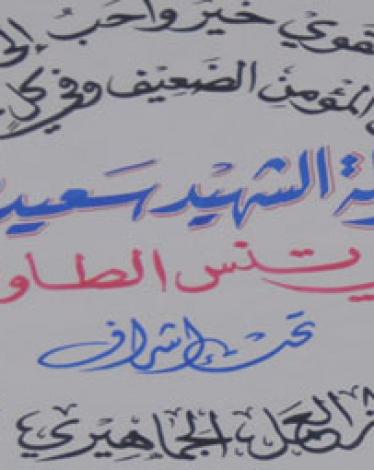 القوي خير واحب إلى
المؤمن الضعيف وفي كل
الشهيد سعيد
تنس الطاو
تحت إشراف
العمل الجماهيري